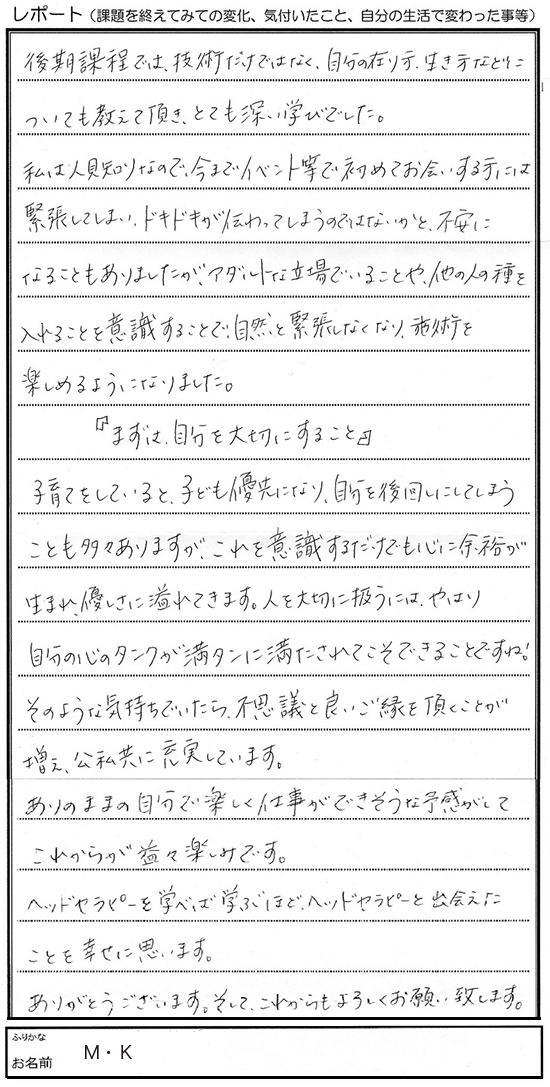 レポート（課題を終えてみての変化、気付いたこと、自分の生活で変わった事等）
後期課程では、技術だけではなく、自分の在り方、生き方などに
ついても教えて頂き、とても深い学びでした。
私は人見知りなので、今までイベント等で初めてお会いする方には
緊張してしまい、ドキドキが伝わってしまうのではないかと、不安に
なることもありましたが、アダルトな立場でいることや、他の人の種を
入れることを意識することで、自然と緊張しなくなり、施術を
楽しめるようになりました。
『まずは、自分を大切にすること』
子育てをしていると、子ども優先になり、自分を後回しにしてしまう
ことも多々ありますが、これを意識するだけでも心に余裕が
生まれ、優しさに溢れてきます。人を大切に扱うには、やはり
自分の心のタンクが満タンに満たされてこそできることですね!
そのような気持ちでいたら、不思議と良いご縁を頂くことが
増え、公私共に充実しています。
ありのままの自分で楽しく仕事ができそうな予感がして
これからが益々楽しみです。
ヘッドセラピーを学べば学ぶほど、ヘッドセラピーと出会えた
ことを幸せに思います。
ありがとうございます。そして、これからもよろしくお願い致します。
ふりかな
お名前 M・K